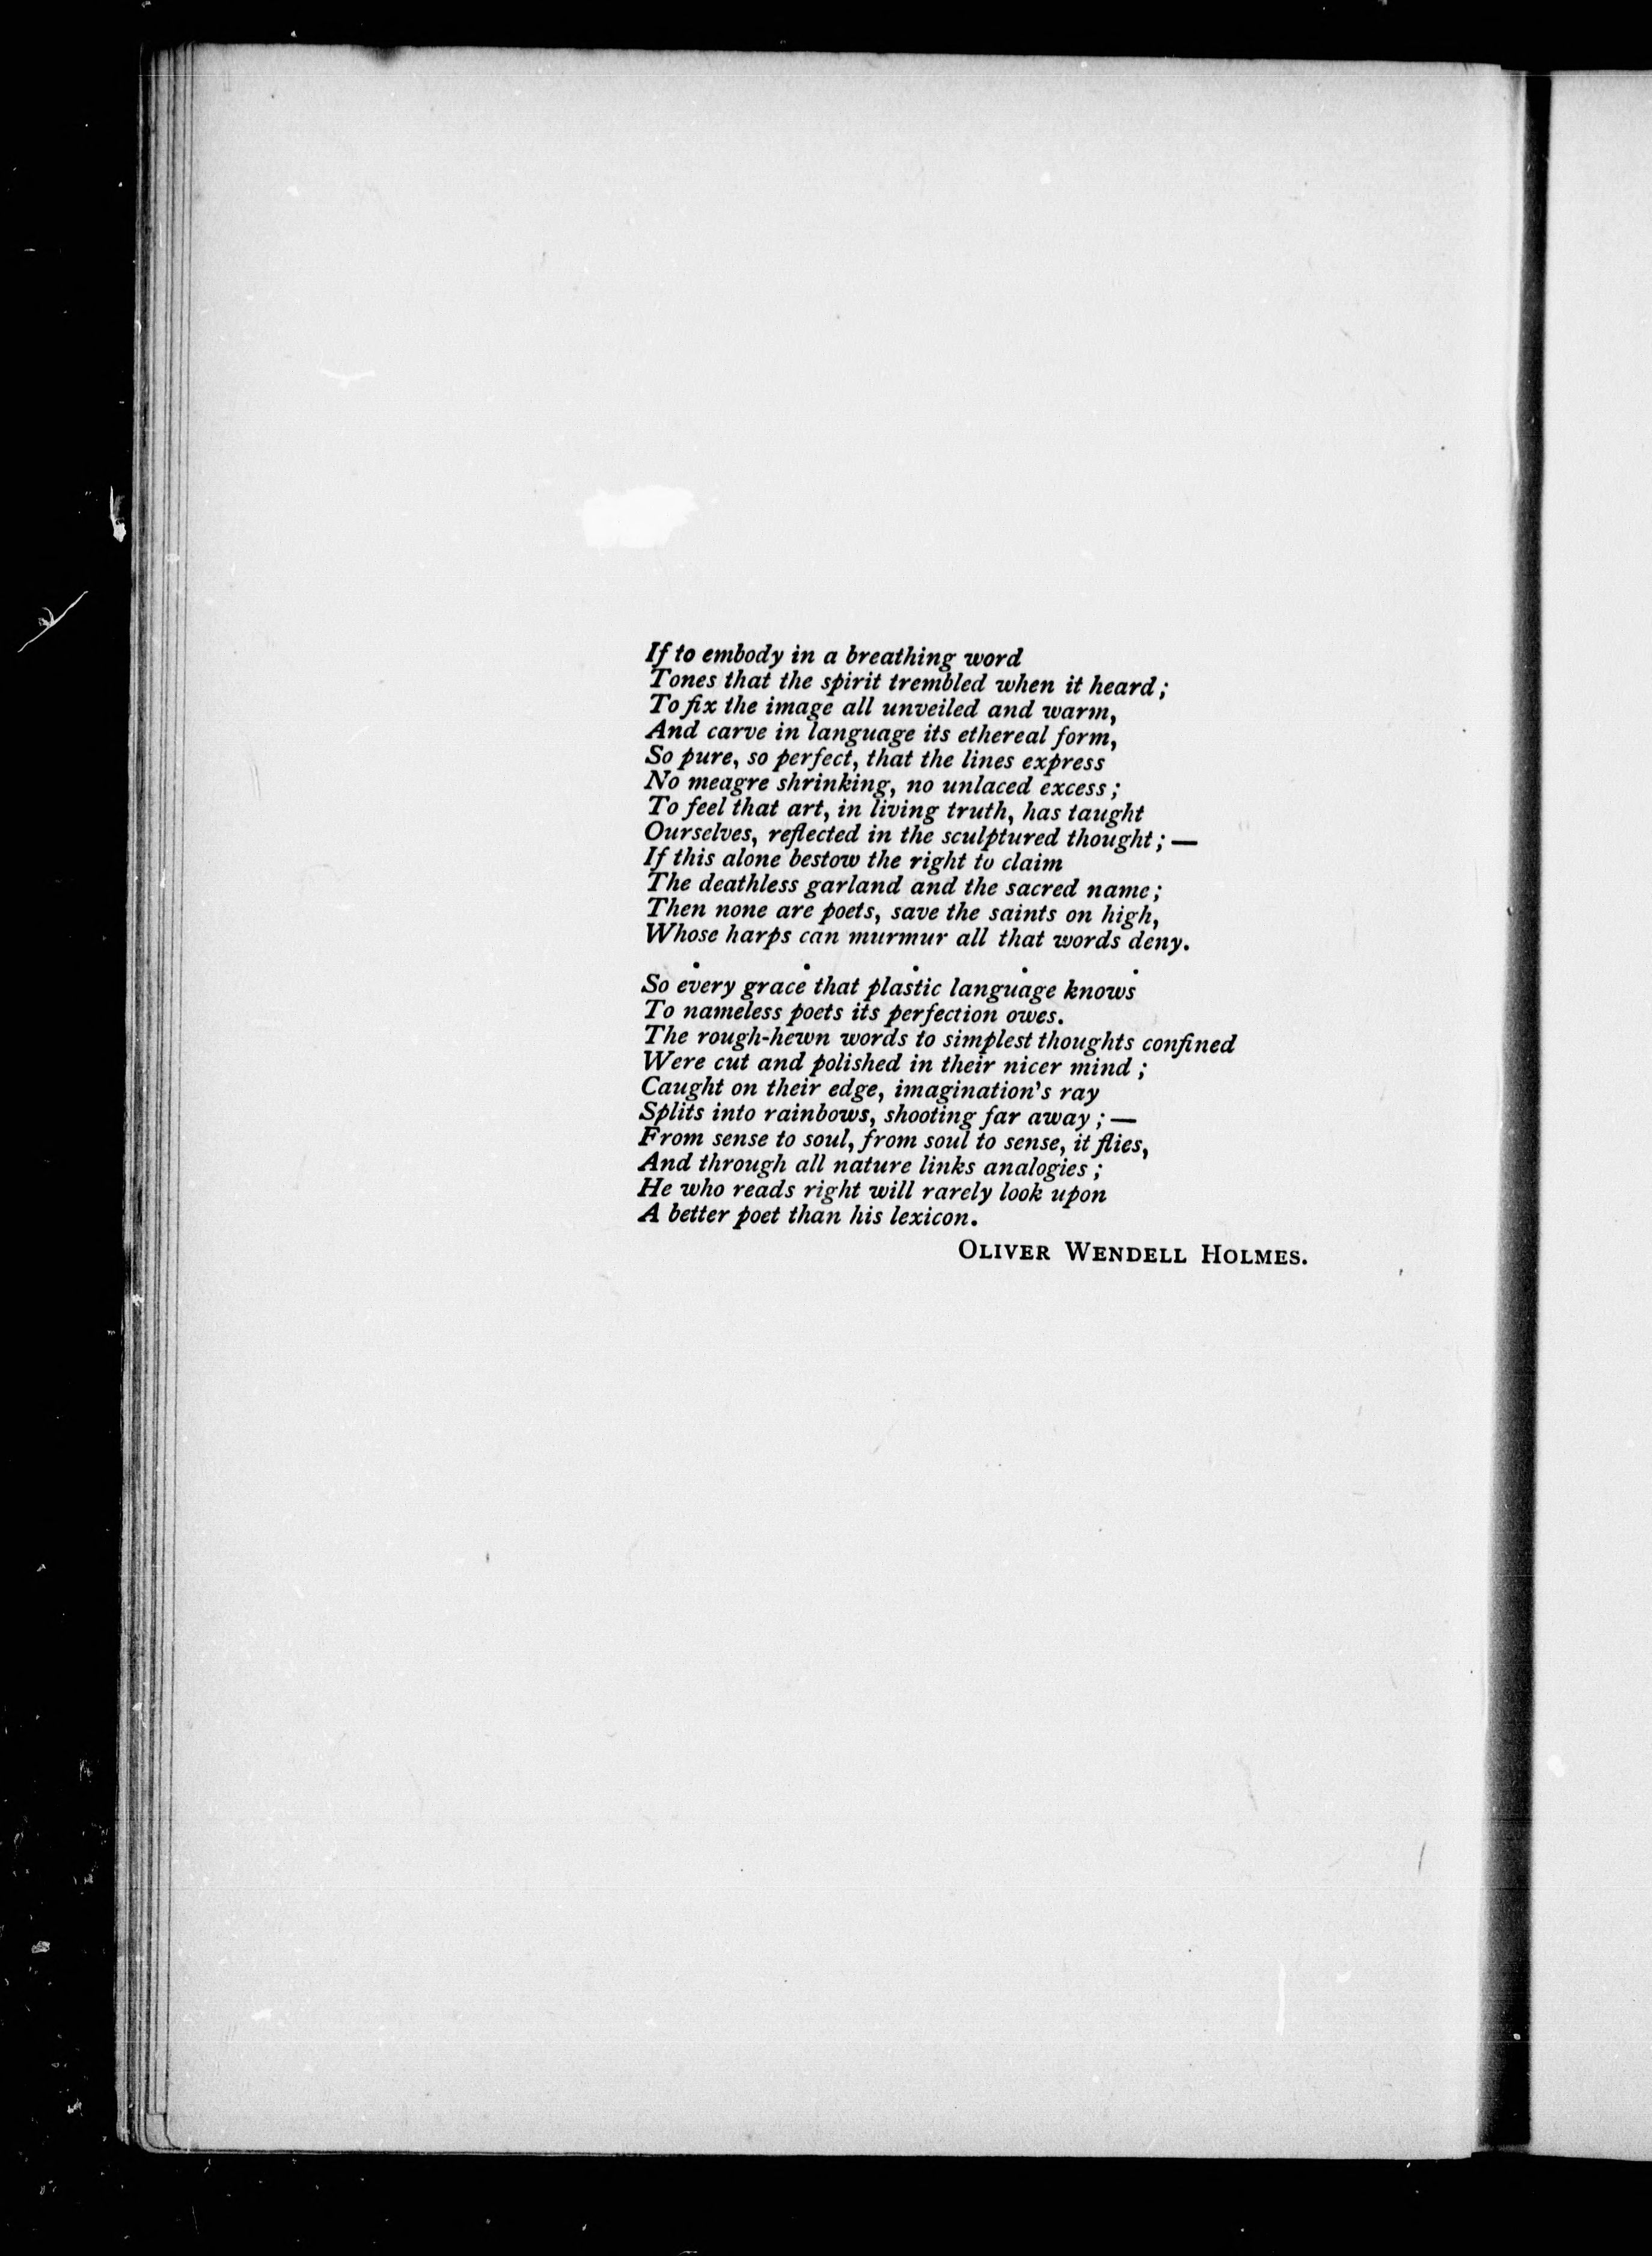 If to embody in a breathing word
Tones that the spirit trembled when it heard;
To fix the image all unveiled and warm,
And carve in language its ethereal form,
So pure, so perfect, that the lines express
No meagre shrinking, no unlaced excess;
To feel that art, in living truth, has taught
Ourselves, reflected in the sculptured thought; —
If this alone bestow the right to claim
The deathless garland and the sacred name;
Then none are poets, save the saints on high,
Whose harps can murmur all that words deny.
. . . . .
So every grace that plastic language knows
To nameless poets its perfection owes.
The rough-hewn words to simplest thoughts confined
Were cut and polished in their nicer mind;
Caught on their edge, imagination's ray
Splits into rainbows, shooting far away; —
From sense to soul, from soul to sense, it flies,
And through all nature links analogies;
He who reads right will rarely look upon
A better poet than his lexicon.
OLIVER WENDELL HOLMES.